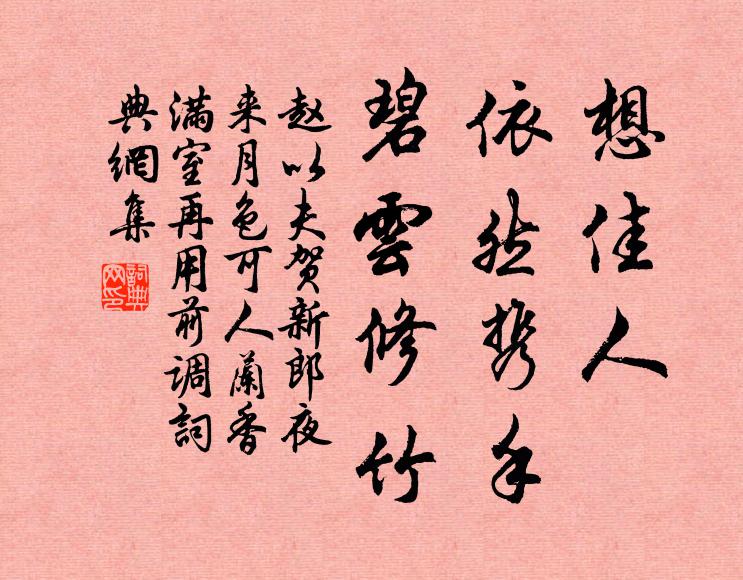 想佳人
依然携手
碧雲修竹
赵以夫贺新郎夜
来月色可人蘭香
满室再用前调詞
典網集
詞典
网印